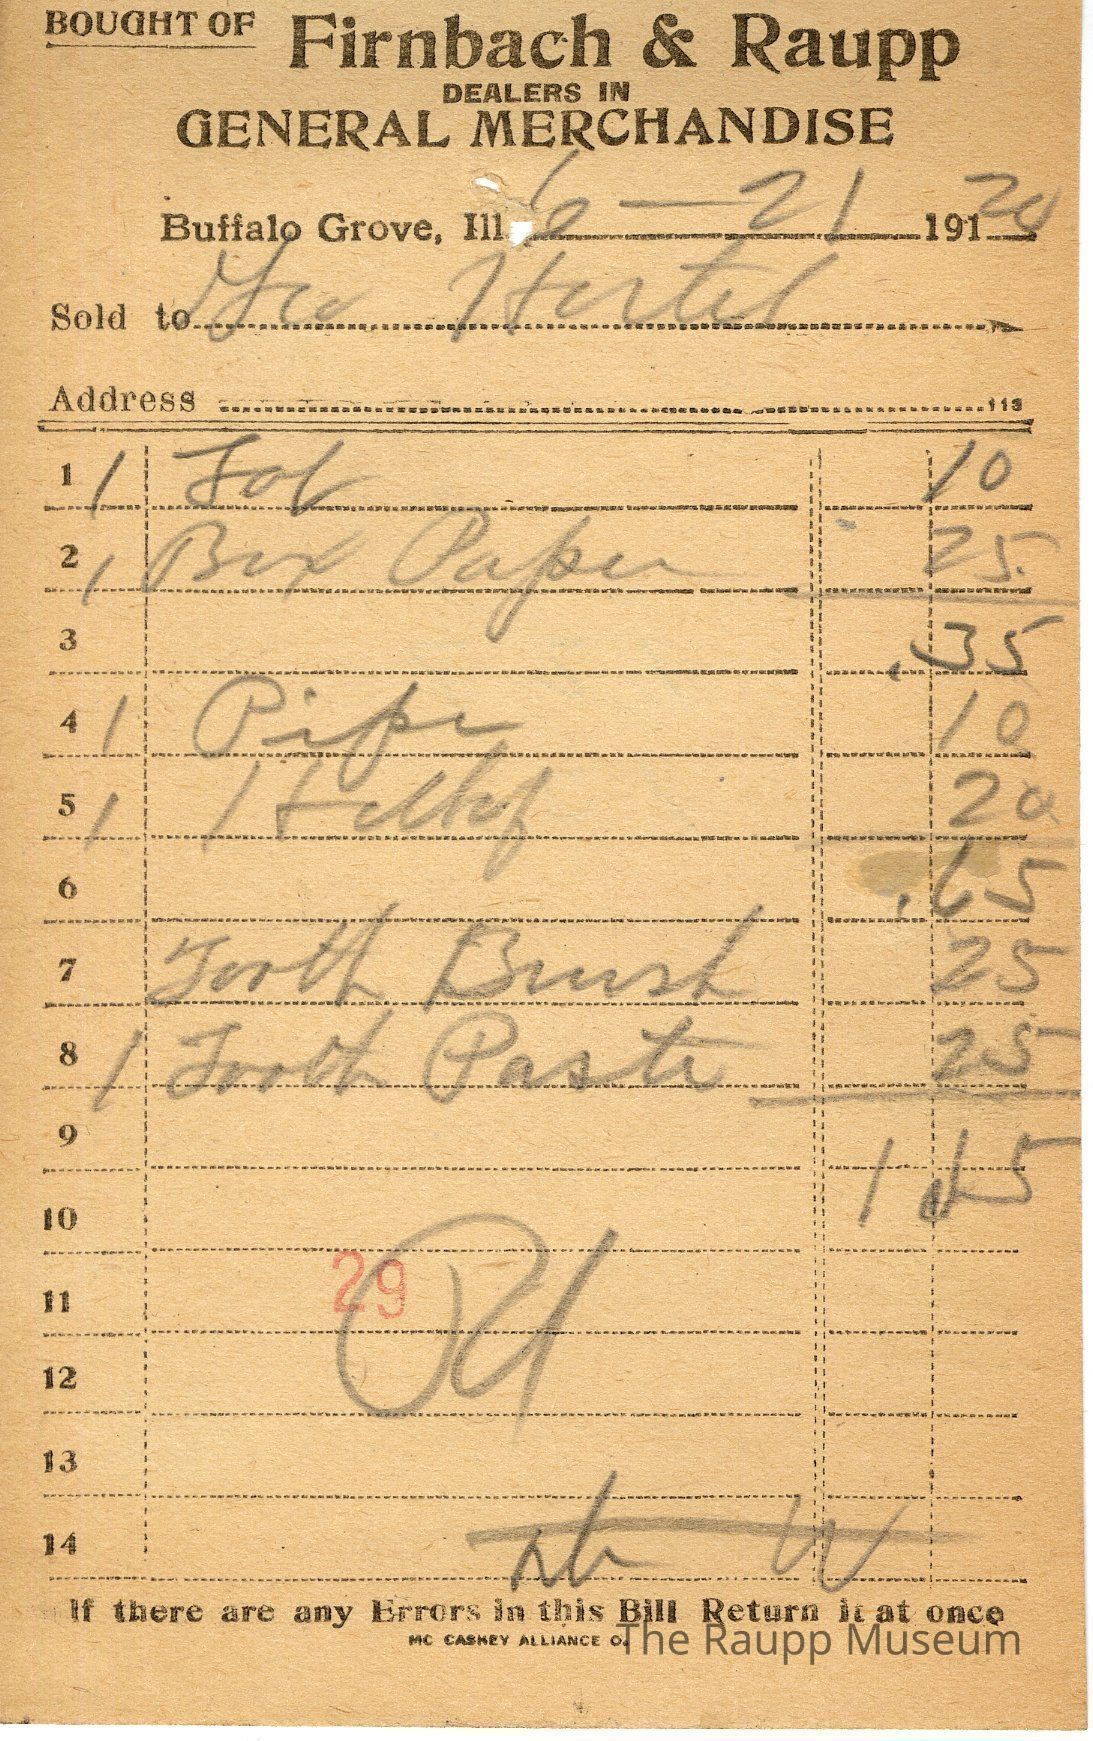 BOUGHT OF Firnbach & Raupp
DEALERS IN
GENERAL MERCHANDISE
Buffalo Grove, Ill. 6 - 21 191 20
Sold to Geo Hertel
Address 113
1 1 10
2 1 Box Paper 25
3 .35
4 1 Pipe 10
5 1 20
6 .65
7 Tooth Brush 25
8 1 Tooth Paste 25
9 1.15
10
29
11
12
13
14
If there are any Errors in this Bill Return it at once
MC CASKEY ALLIANCE O.
The Raupp Museum